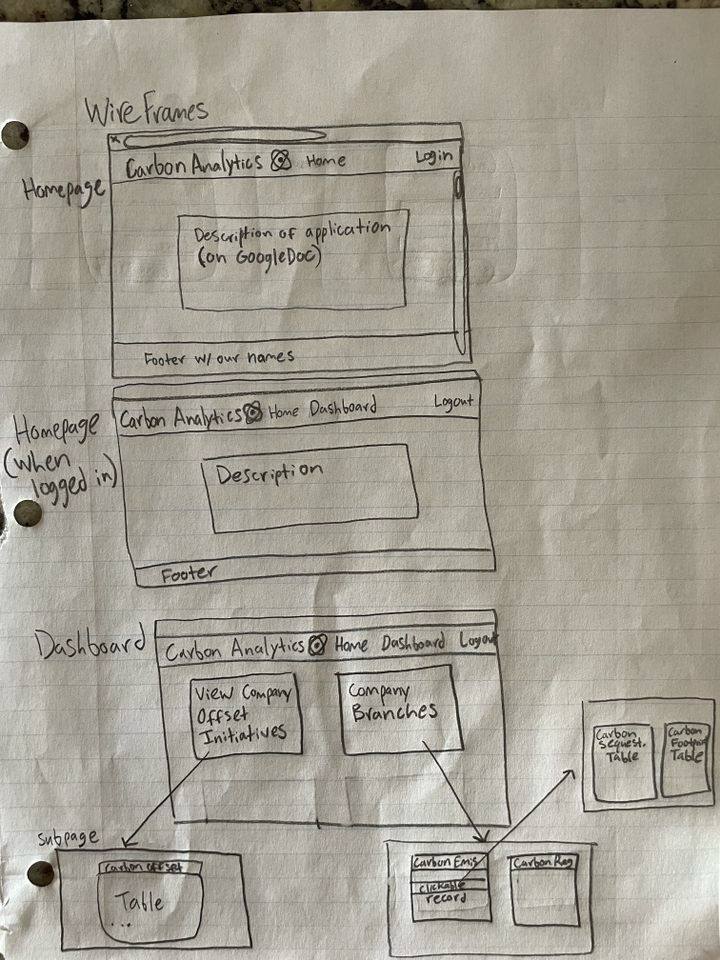 WireFrames
Homepage
x
Carbon Analytics Home Login
Description of application
(on GoogleDoc)
Footer w/ our names
Homepage
(when
logged in)
Carbon Analytics Home Dashboard Logout
Description
Footer
Dashboard
Carbon Analytics Home Dashboard Logout
View Company
Offset
Initiatives
Company
Branches
Carbon
Sequest.
Table
Carbon
Footprint
Table
subpage
Carbon offset
Table
...
Carbon Emis
clickable
record
Carbon Reg